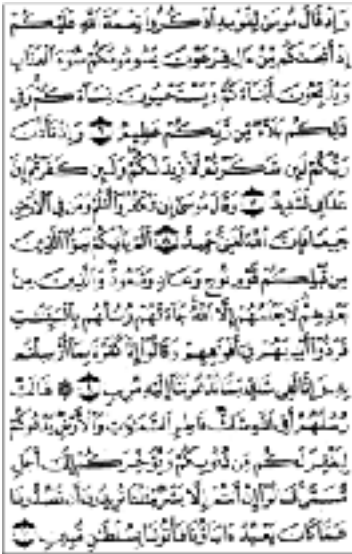 وَإِذْ قَالَ مُوسَىٰ لِقَوْمِهِ اذْكُرُوا نِعْمَةَ اللَّهِ عَلَيْكُمْ
إِذْ أَنجَاكُم مِّنْ آلِ فِرْعَوْنَ يَسُومُونَكُمْ سُوءَ الْعَذَابِ
وَيُذَبِّحُونَ أَبْنَاءَكُمْ وَيَسْتَحْيُونَ نِسَاءَكُمْ وَفِي
ذَٰلِكُم بَلَاءٌ مِّن رَّبِّكُمْ عَظِيمٌ ۝٦ وَإِذْ تَأَذَّنَ
رَبُّكُمْ لَئِن شَكَرْتُمْ لَأَزِيدَنَّكُمْ وَلَئِن كَفَرْتُمْ إِنَّ
عَذَابِي لَشَدِيدٌ ۝٧ وَقَالَ مُوسَىٰ إِن تَكْفُرُوا أَنتُمْ وَمَن فِي الْأَرْضِ
جَمِيعًا فَإِنَّ اللَّهَ لَغَنِيٌّ حَمِيدٌ ۝٨ أَلَمْ يَأْتِكُمْ نَبَأُ الَّذِينَ
مِن قَبْلِكُمْ قَوْمِ نُوحٍ وَعَادٍ وَثَمُودَ وَالَّذِينَ مِن
بَعْدِهِمْ لَا يَعْلَمُهُمْ إِلَّا اللَّهُ جَاءَتْهُمْ رُسُلُهُم بِالْبَيِّنَاتِ
فَرَدُّوا أَيْدِيَهُمْ فِي أَفْوَاهِهِمْ وَقَالُوا إِنَّا كَفَرْنَا بِمَا أُرْسِلْتُم
بِهِ وَإِنَّا لَفِي شَكٍّ مِّمَّا تَدْعُونَنَا إِلَيْهِ مُرِيبٍ ۝٩ ۞ قَالَتْ
رُسُلُهُمْ أَفِي اللَّهِ شَكٌّ فَاطِرِ السَّمَاوَاتِ وَالْأَرْضِ يَدْعُوكُمْ
لِيَغْفِرَ لَكُم مِّن ذُنُوبِكُمْ وَيُؤَخِّرَكُمْ إِلَىٰ أَجَلٍ
مُّسَمًّى قَالُوا إِنْ أَنتُمْ إِلَّا بَشَرٌ مِّثْلُنَا تُرِيدُونَ أَن تَصُدُّونَا
عَمَّا كَانَ يَعْبُدُ آبَاؤُنَا فَأْتُونَا بِسُلْطَانٍ مُّبِينٍ ۝١٠